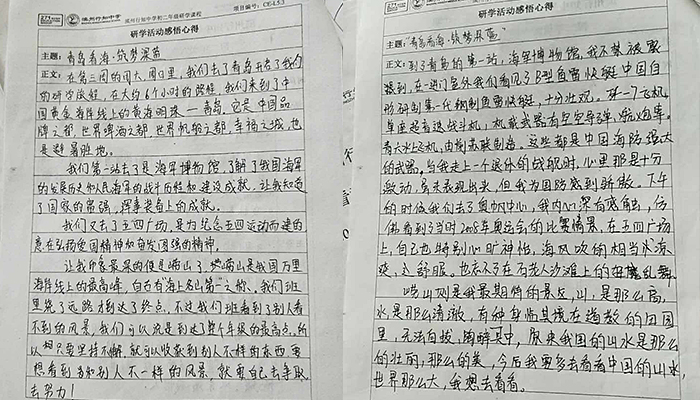 滨州行知中学初二年级研学课程
项目编号：
研学活动感悟心得
主题：青岛看海·筑梦深蓝
正文：在第三周的周六、周日里，我们去了青岛开启了我们
的研学旅程，在大约6个小时的路程，我们来到了中
国黄金海岸线上的黄海明珠——青岛，它是中国品
牌之都，世界啤酒之都，世界帆船之都，幸福之城，也
是避暑胜地。
我们第一站去了是海军博物馆，了解了我国海军
的发展历史和人民海军的战斗历程和建设成就，让我知道
了国家的富强，军事装备上的成就。
我们又去了五四广场，是为纪念五四运动而建的
意在弘扬爱国精神和奋发图强的精神。
让我印象最深的便是崂山了，崂山是我国万里
海岸线上的最高峰，自古有"海上名山第一"之称，我们班
里绕了远路才到达了终点，不过我们班看到了别人看
不到的风景，我们可以说是到达了整个年级的最高点，所
以只要坚持不懈，就可以收获到别人不一样的东西，要
想看到和别人不一样的风景，就要自己去争取
去努力！
滨州行知中学初二年级研学课程
研学活动感悟心得
主题："青岛看海，筑梦深蓝"
正文：到了青岛的第一站，海军博物馆，我不禁被震
撼到，在进门室外我们看见了B型鱼雷快艇，中国自
行研制第一代钢制鱼雷快艇，十分壮观。
单座超音速战斗机，机载武器有空空导弹、航火炮等。
看大水上飞机，由前苏联制造。这些都是中国海防强大
的武器，当我走上一个退休的战舰时，心里那是十分
激动，虽未表现出来，但我为国防感到骄傲。下午
的时候我们去了奥帆中心，我内心深有感触，仿
佛看到了当时2008年奥运会的比赛情景，在五四广场
上，自己也特别心旷神怡，海风吹的相当凉
爽，舒服。也忘不了在石老人沙滩上的群魔乱舞。
崂山则是我最期待的景点，山，是那么高，
水是那么清澈，有种身临其境在道教的田园
里，无法自拔，陶醉其中，原来我国的山水是那么
的壮丽，那么的美，今后我要多去看看中国的山水，
世界那么大，我想去看看。